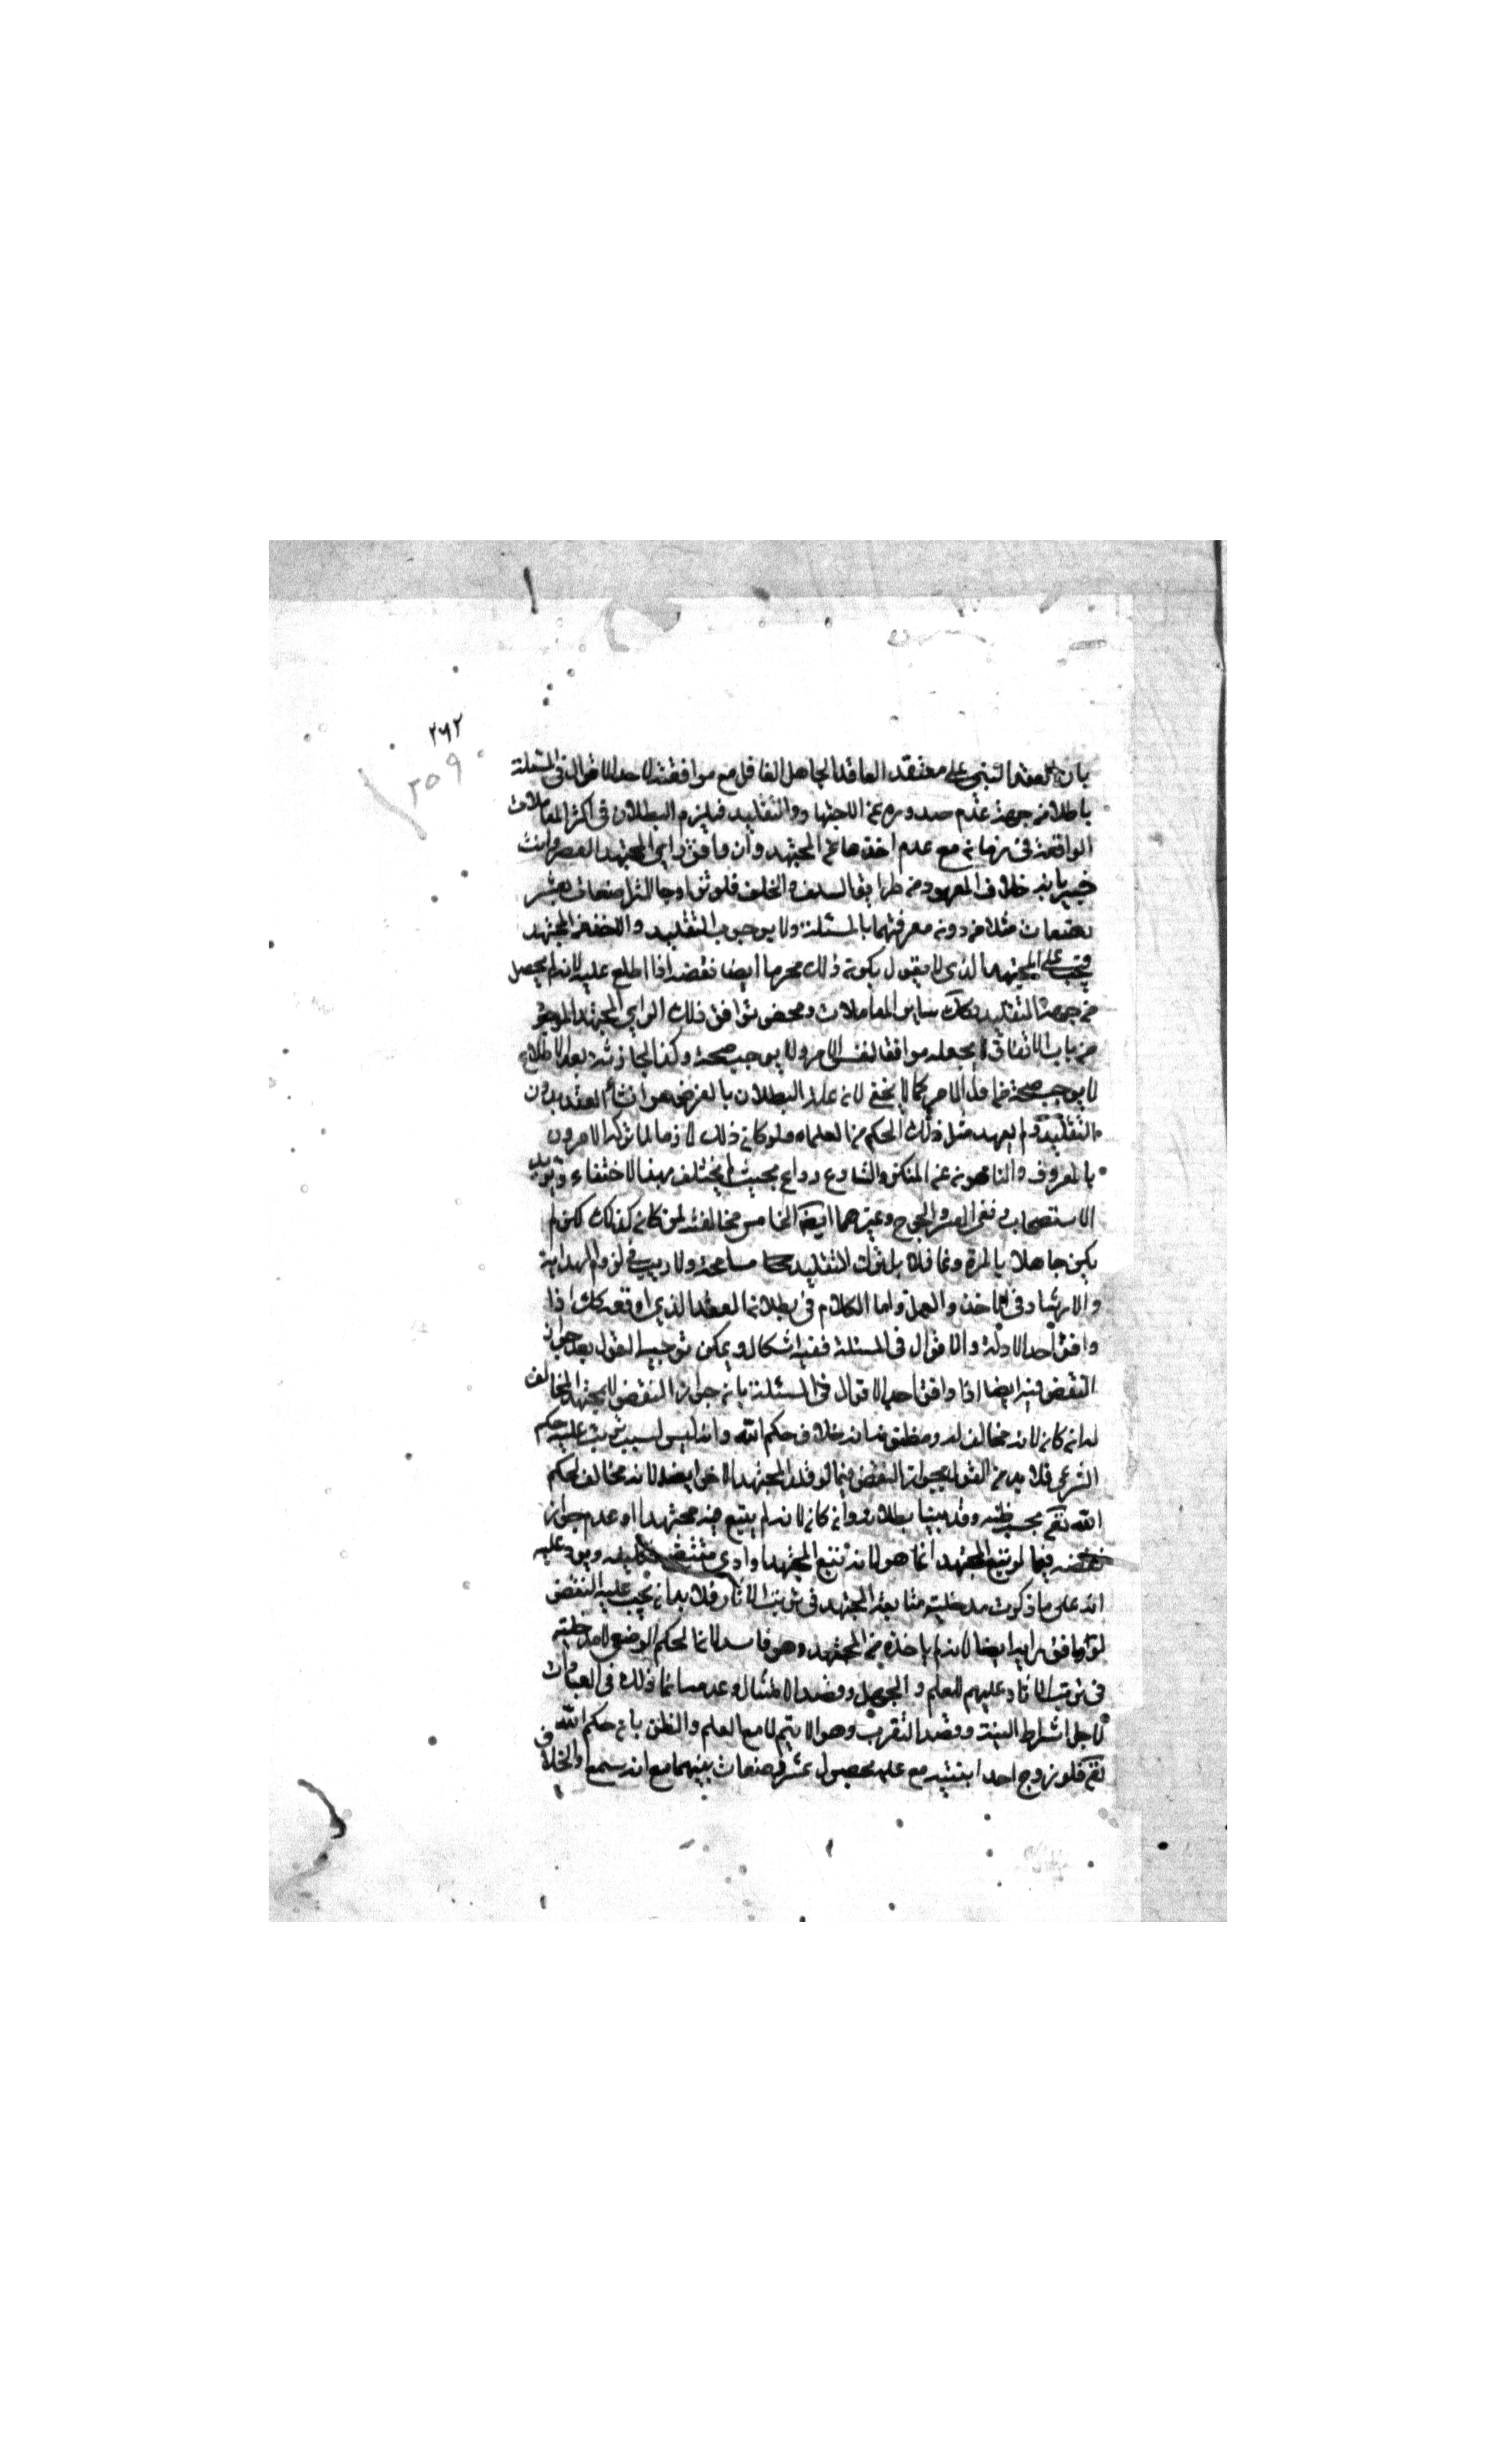 ٢٦٢
٢٥٩
بان العقد المبني على معتقد العاقد الجاهل الغافل مع موافقته لاحد الاقوال في المسئلة
باطلا من جهة عدم صدوره عن الاجتهاد والتقليد فيلزم البطلان في اكثر المعاملات
الواقعة في زمانه مع عدم اخذها عن المجتهد وان وافق راي المجتهد العصر وانت
خبير بانه خلاف المعهود من طرايق السلف والخلف فلو تزاوجا المتراضعان بعشر
رضعات مثلا من دون معرفتهما بالمسئلة ولا بوجوب التقليد والاخذ عن المجتهد
فيجب على المجتهد الذي لا يقول بكون ذلك محرما ايضا نقضه اذا اطلع عليه لانه لم يحصل
من جهة التقليد وكك ساير المعاملات ومحض توافق ذلك الراي المجتهد
من باب الاتفاق لا يجعله موافقا لنفس الامر ولا يوجب صحته وكذا اجازته بعد الاطلاع
لا يوجب صحته كما لا يخفى لان علة البطلان بالفرض هو انشاء العقد بدون
التقليد ولم يعهد مثل ذلك الحكم من العلماء ولو كان ذلك لازما لما تركه الامرون
بالمعروف والناهون عن المنكر
الاستصحاب ونفي العسر والحرج وغيرهما ايضا الخامس مخالفته لمن كان كذلك لكن لم
يكن جاهلا بالمرة وغافلا بل ترك التقليد مسامحة ولا ريب في لزوم الهداية
والارشاد في الاخذ والعمل واما الكلام في بطلان العقد الذي اوقعه كك اذا
وافق احد الادلة والاقوال في المسئلة ففيه اشكال ويمكن توجيه القول بعدم جواز
النقض فيه ايضا اذا وافق احد الاقوال في المسئلة بان جواز النقض للمجتهد المخالف
له ان كان لانه مخالف له ومظنون انه خلاف حكم الله وانه ليس لسبب ترتب عليه حكم
الشرعي فلا بد من القول بجواز النقض فيما لو قلد المجتهد الاخر ايضا لانه مخالف لحكم
الله تعم بحسب ظنه وقد بينا بطلانه وان كان لانه لم يتبع فيه مجتهدا او عدم جواز
نقضه فيما لو تتبع المجتهد انما هو لانه تتبع المجتهد وادى مقتضى تكليفه ويرد عليه
انه على ما ذكرت مدخلية متابعة المجتهد في ترتب الاثار فلا بد ان يجب عليه النقض
لو وافق رايه ايضا لانه لم ياخذه من المجتهد وهو فاسد لان الحكم الوضعي لا مدخلية
في ترتب الاثار عليه للعلم والجهل وقصد الامتثال وعدمه انما ذلك في العبادات
لاجل اشتراط النية وقصد التقرب وهو لا يتم الا مع العلم والظن بانه حكم الله
تعم فلو زوج احد ابنتيه مع علمه بحصول عشر رضعات بينهما مع انه سمع الخلاف في